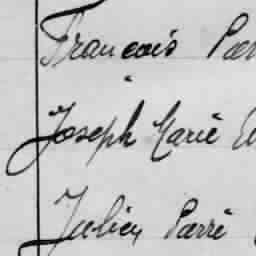 François
Joseph Marie
Julien Pierre